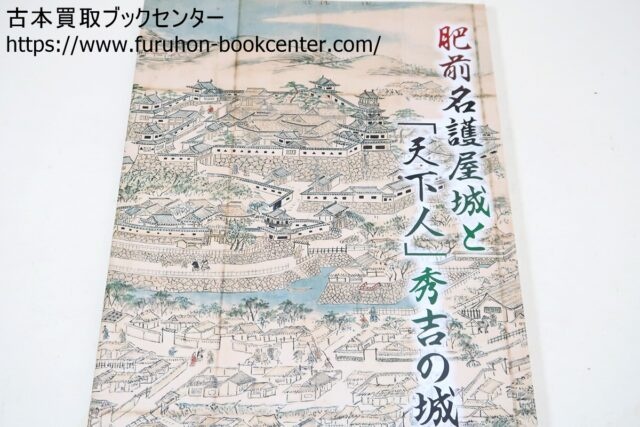 古本買取ブックセンター
https://www.furuhon-bookcenter.com/
肥前名護屋城と
「天下人」秀吉の城